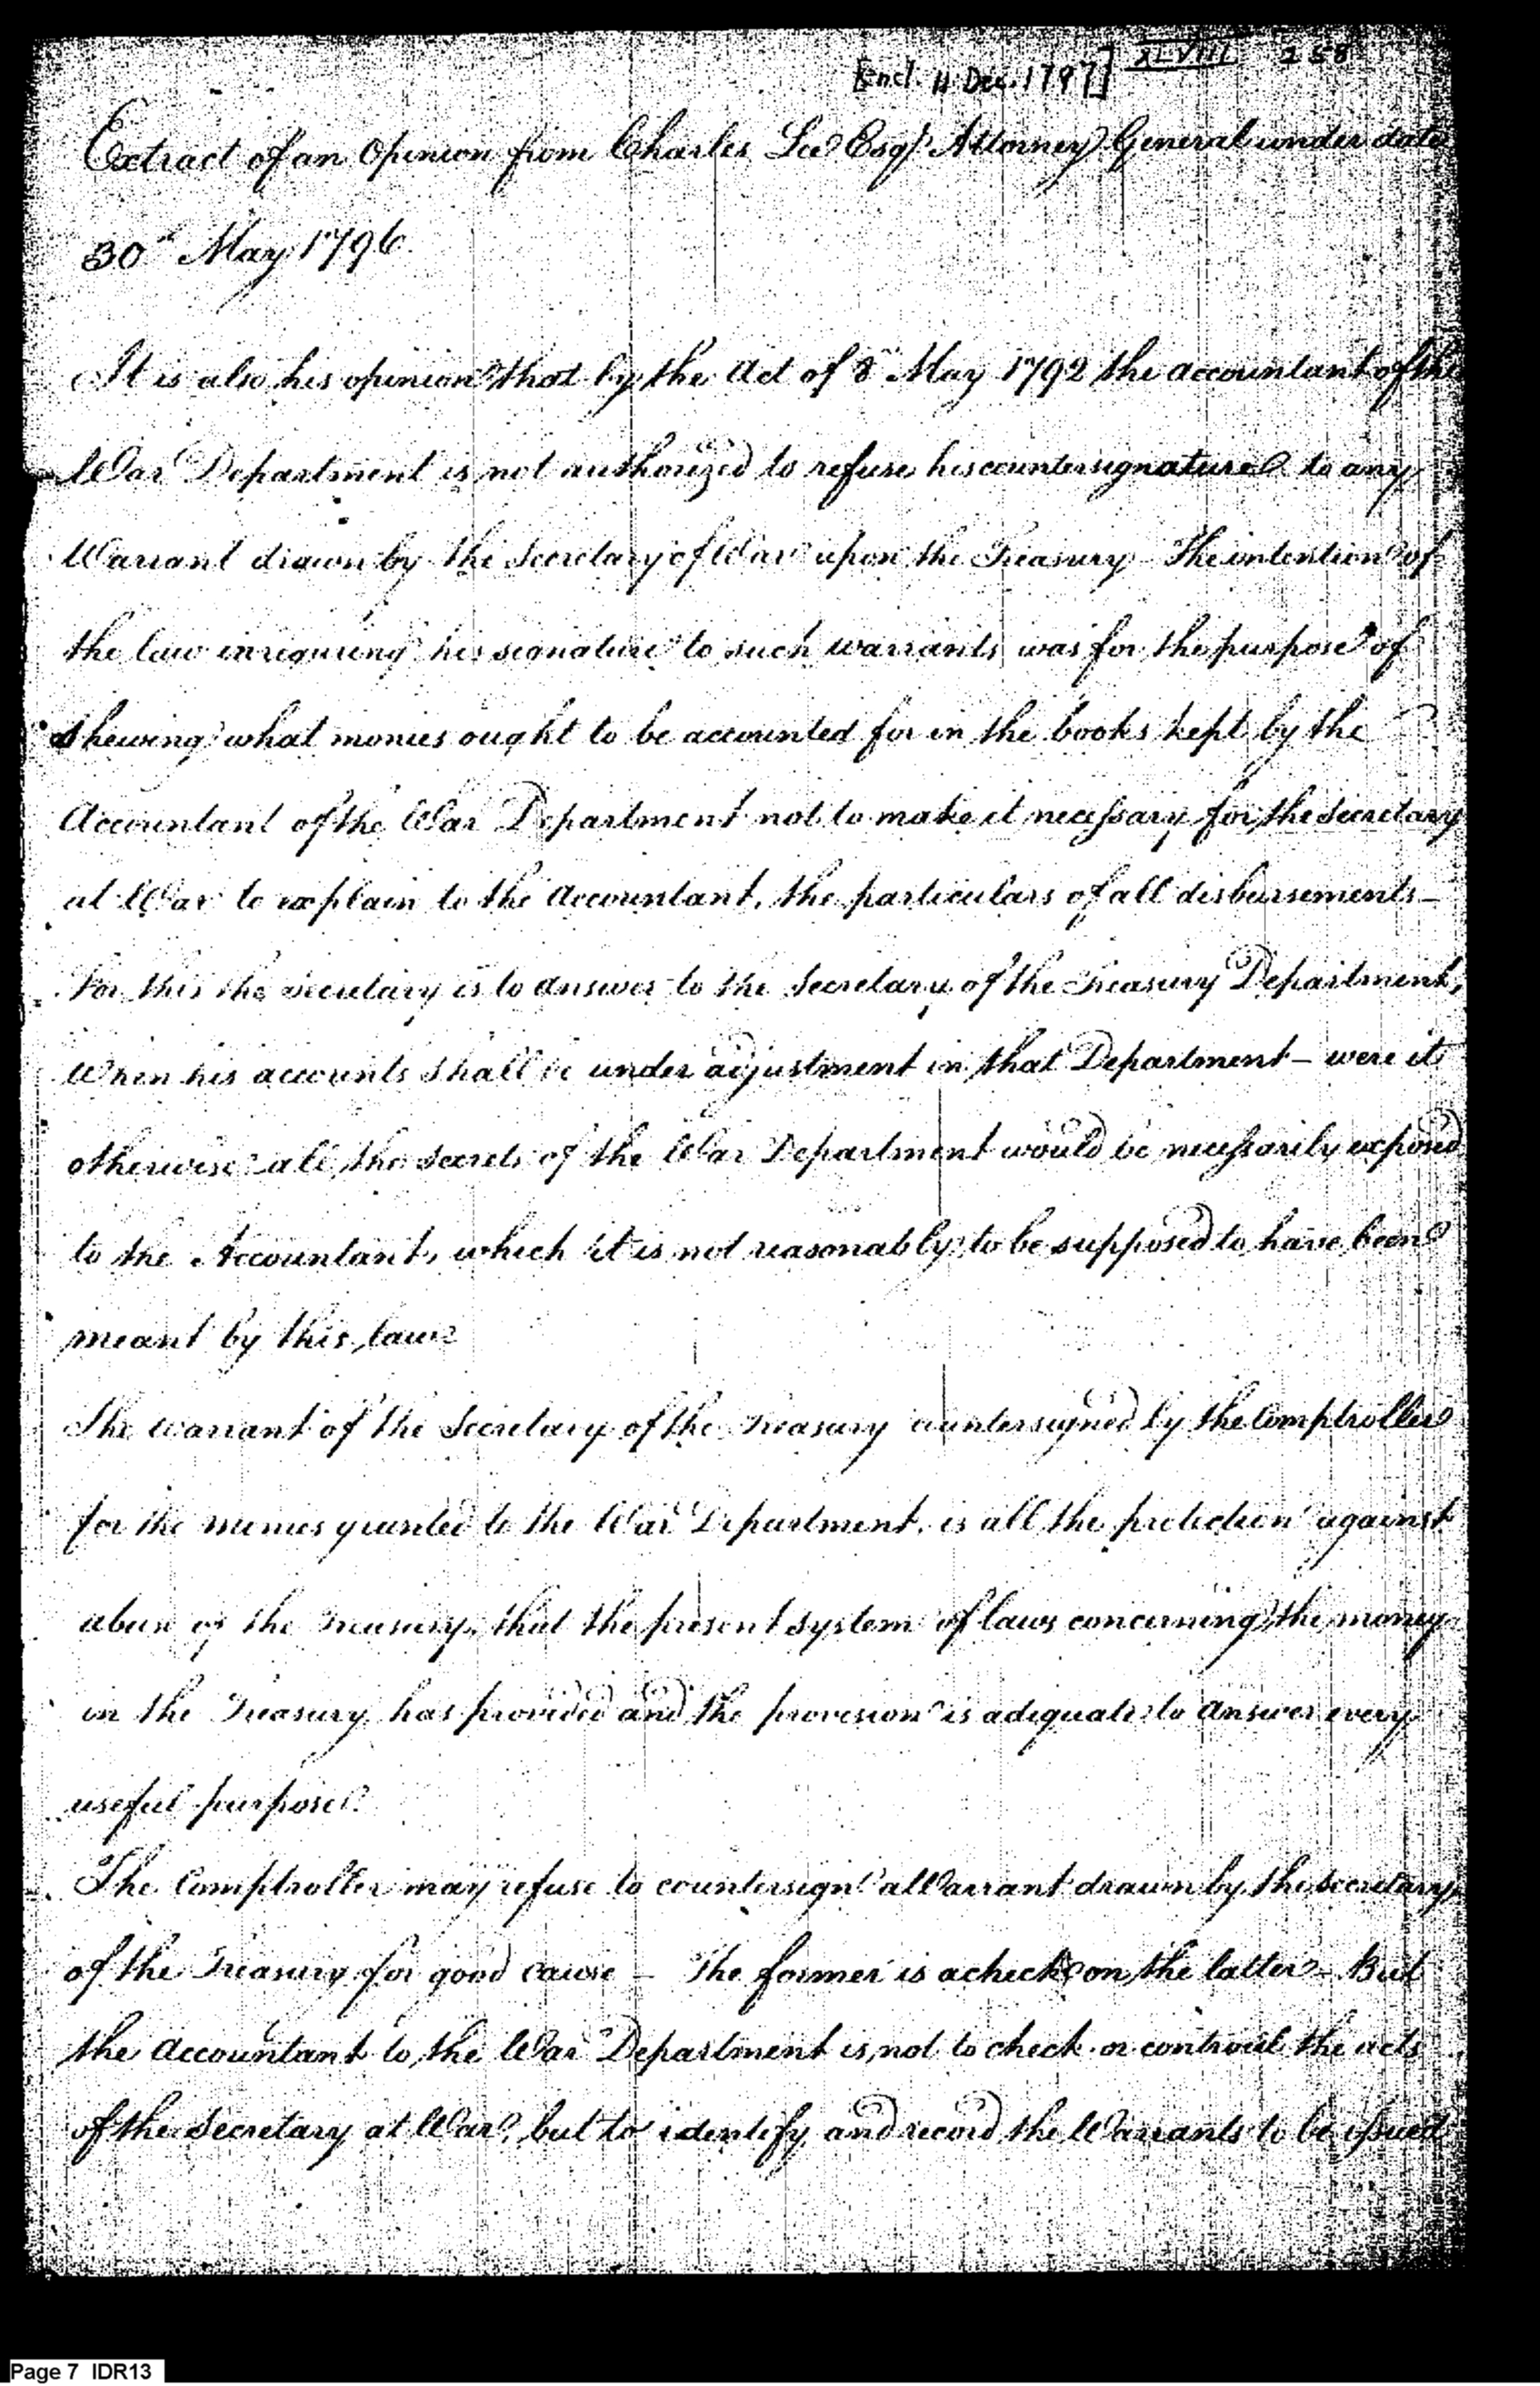 [Encl. 11 Dec. 1797] XLVIII 258
Extract of an Opinion from Charles Lee Esqr. Attorney General under date
30th May 1796.
It is also his opinion that by the Act of 8 May 1792 the accountant of the
War Department is not authorized to refuse his countersignature to any
Warrant drawn by the Secretary of War upon the Treasury - The intention of
the law in requiring his signature to such warrants was for the purpose of
shewing what monies ought to be accounted for in the books kept by the
Accountant of the War Department not to make it necessary for the Secretary
at War to explain to the Accountant, the particulars of all disbursements -
For this the Secretary is to answer to the Secretary of the Treasury Department,
When his accounts shall be under adjustment in that Department - were it
otherwise all the secrets of the War Department would be necessarily exposed
to the Accountant, which it is not reasonably to be supposed to have been
meant by this law
The warrant of the Secretary of the Treasury countersigned by the Comptroller
for the monies granted to the War Department, is all the protection against
abuse of the Treasury, that the present system of laws concerning the money
in the Treasury has provided and the provision is adequate to answer every
useful purpose.
The Comptroller may refuse to countersign a Warrant drawn by the Secretary
of the Treasury for good cause - The former is a check on the latter - But
the Accountant to the War Department is not to check or controul the acts
of the Secretary at War, but to identify and record the Warrants to be issued
Page 7 IDR13